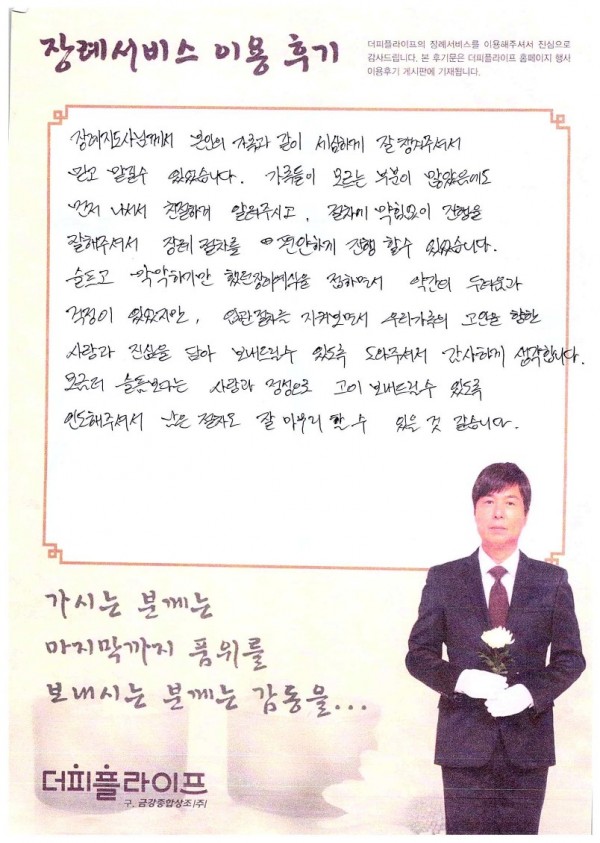 장례서비스 이용 후기
더피플라이프의 장례서비스를 이용해주셔서 진심으로
감사드립니다. 본 후기문은 더피플라이프 홈페이지 행사
이용후기 게시판에 기재됩니다.
장례지도사님께서 본인의 가족과 같이 세심하게 잘 챙겨주셔서
믿고 맡길수 있었습니다. 가족들이 모르는 부분이 많았음에도
먼저 나서서 친절하게 알려주시고, 절차에 막힘없이 진행을
잘해주셔서 장례 절차를 편안하게 진행 할수 있었습니다.
슬프고 막막하지만 했던 장례식을 접하면서 약간의 두려움과
걱정이 있었지만, 입관절차는 지켜보면서 우리가족의 고인을 향한
사랑과 진심을 담아 보내드릴수 있도록 도와주셔서 감사하게 생각합니다.
모쪼록 슬픔보다는 사랑과 정성으로 고이 보내드릴수 있도록
인도해주셔서 남은 절차도 잘 마무리 할 수 있을 것 같습니다.
가시는 분께는
마지막까지 품위를
보내시는 분께는 감동을...
더피플라이프
구. 금강종합상조(주)